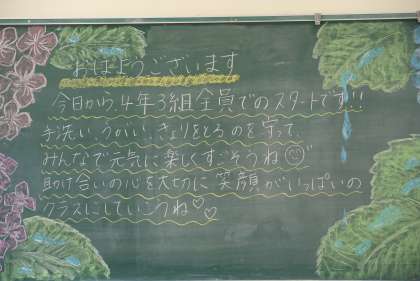 おはようございます
今日から、4年3組全員でのスタートです!!
手洗い、うがい、きょりをとるのを守って、
みんなで元気に楽しくすごそうね
助け合いの心を大切に笑顔がいっぱいの
クラスにしていこうね♡♡